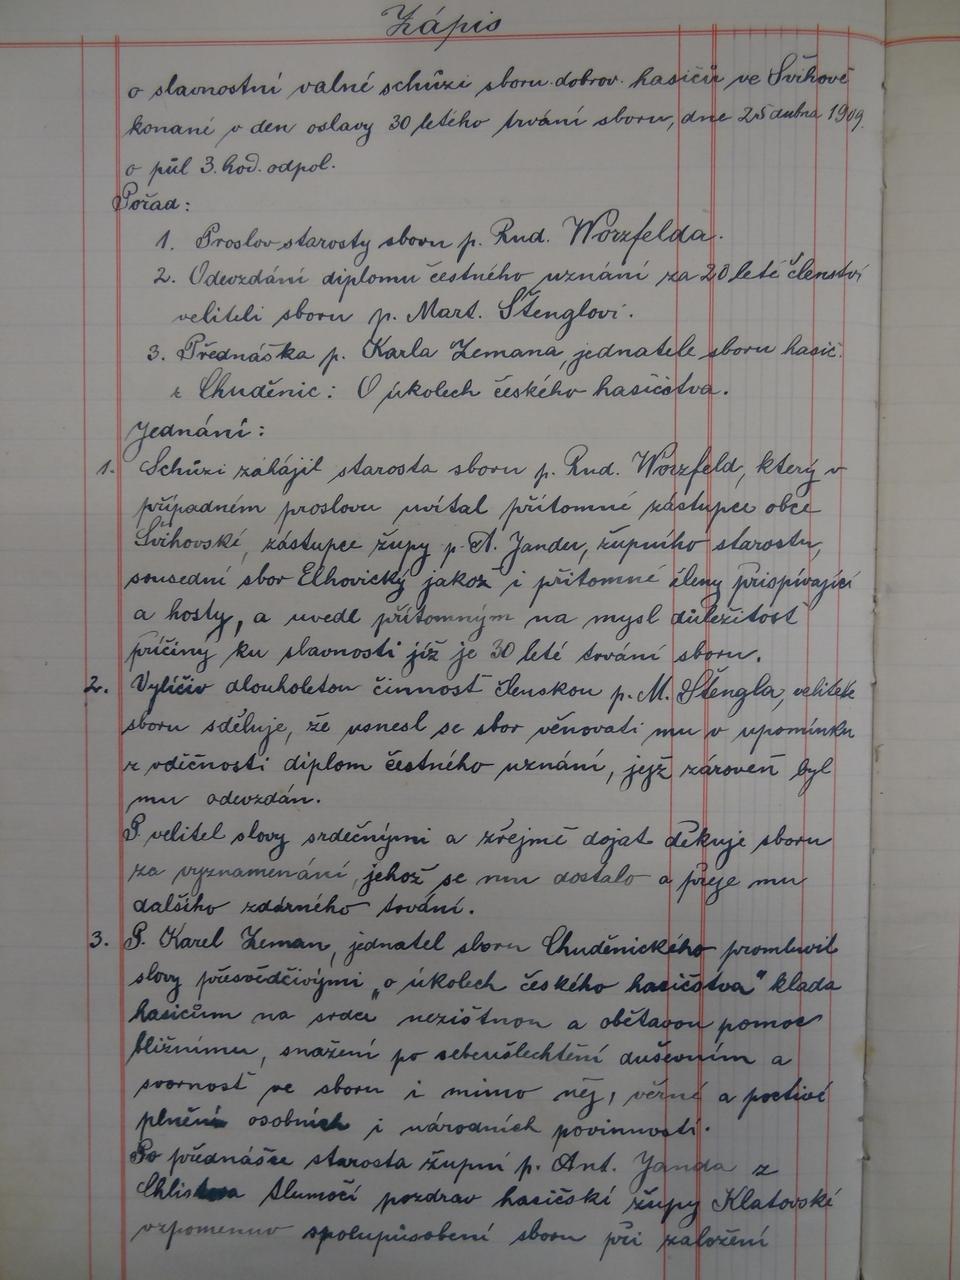 Zápis
o slavnostní valné schůzi sboru dobrov. hasičů ve Švihově
konané v den oslavy 30 letého trvání sboru, dne 25 dubna 1909.
o půl 3. hod. odpol.
Pořad:
1. Proslov starosty sboru p. Rud. Worzfelda.
2. Odevzdání diplomu čestného uznání za 20 leté členství
veliteli sboru p. Mart. Štenglovi.
3. Přednáška p. Karla Zemana, jednatele sboru hasič.
z Chuděnic: O úkolech českého hasičstva.
Jednání:
1. Schůzi zahájil starosta sboru p. Rud. Worzfeld, který v
případném proslovu uvítal přítomné zástupce obce
Švihovské, zástupce župy p. A. Jandu, župního starostu,
sousední sbor Elhovický jakož i přítomné členy přispívající
a hosty, a uvedl přítomným na mysl důležitost
příčiny ku slavnosti jíž je 30 leté trvání sboru.
2. Vylíčiv dlouholetou činnost členskou p. M. Štengla, velitele
sboru sděluje, že usnesl se sbor věnovati mu v upomínku
z vděčnosti diplom čestného uznání, jejž zároveň byl
mu odevzdán.
P. velitel slovy srdečnými a zřejmě dojat děkuje sboru
za vyznamenání, jehož se mu dostalo a přeje mu
dalšího zdárného trvání.
3. P. Karel Zeman, jednatel sboru Chuděnického promluvil
slovy přesvědčivými „o úkolech českého hasičstva" klada
hasičům na srdce nezištnou a obětavou pomoc
bližnímu, snažení po sebeušlechtění duševním a
svornost ve sboru i mimo něj, věrné a poctivé
plnění osobních i národních povinností.
Po přednášce starosta župní p. Ant. Janda z
Chlistova tlumočí pozdrav hasičské župy Klatovské
vzpomenuv spolupůsobení sboru při založení